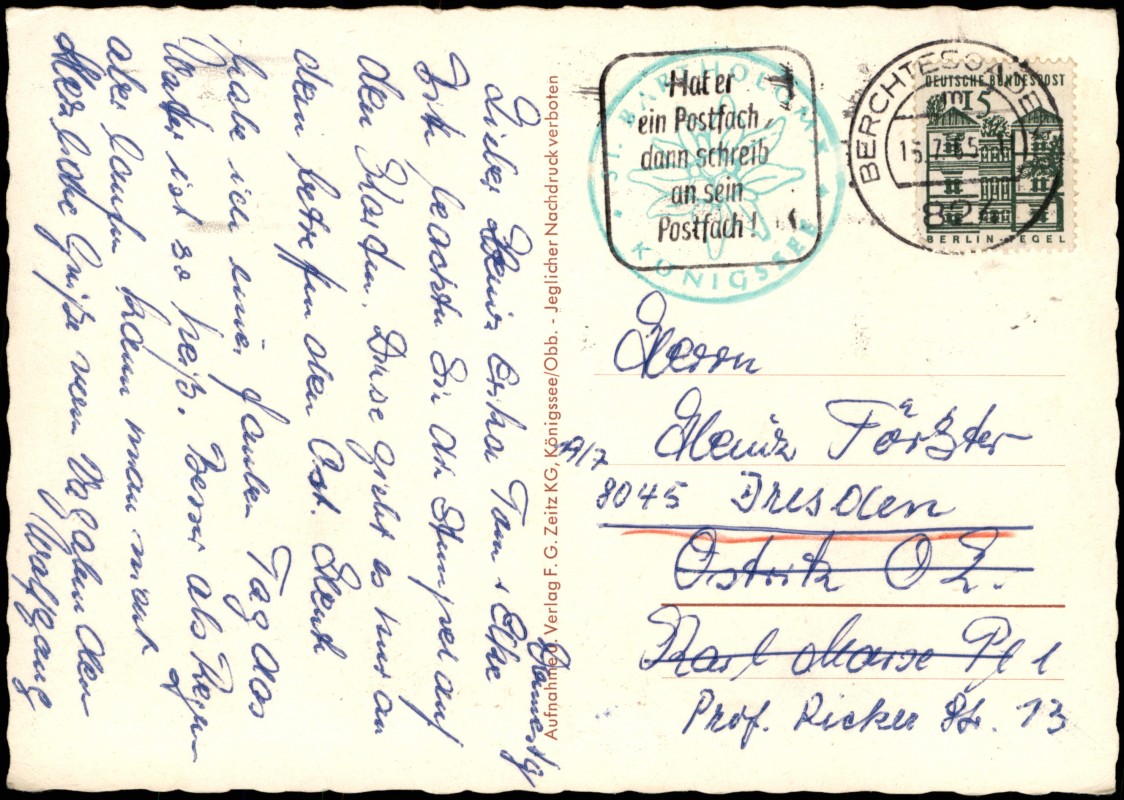 Donnerstg
Liebes Heinz Erika Tom + Elke
Bitte beachten Sie die Stempel auf
den Karten. Diese geht es nur an
dem betreffen den Ost. Heute
habe ich einen faulen Tag das
Wetter ist so heiß. Besser als Regen
aber laufen kann man nicht
Herzliche Grüße vom
Wolfgang
Aufnahme u. Verlag F. G. Zeitz KG, Königssee/Obb. - Jeglicher Nachdruck verboten
Hat er
ein Postfach,
dann schreib
an sein
Postfach!
ST. BARTHOLOMÄ
KÖNIGSSEE
BERCHTESGADEN
15.7.65
824
DEUTSCHE BUNDESPOST
15
BERLIN-TEGEL
Herrn
Heinz Förster
19/7
8045 Dresden
Ostritz O L.
Karl Marx Pl 1
Prof. Ricker Str. 13